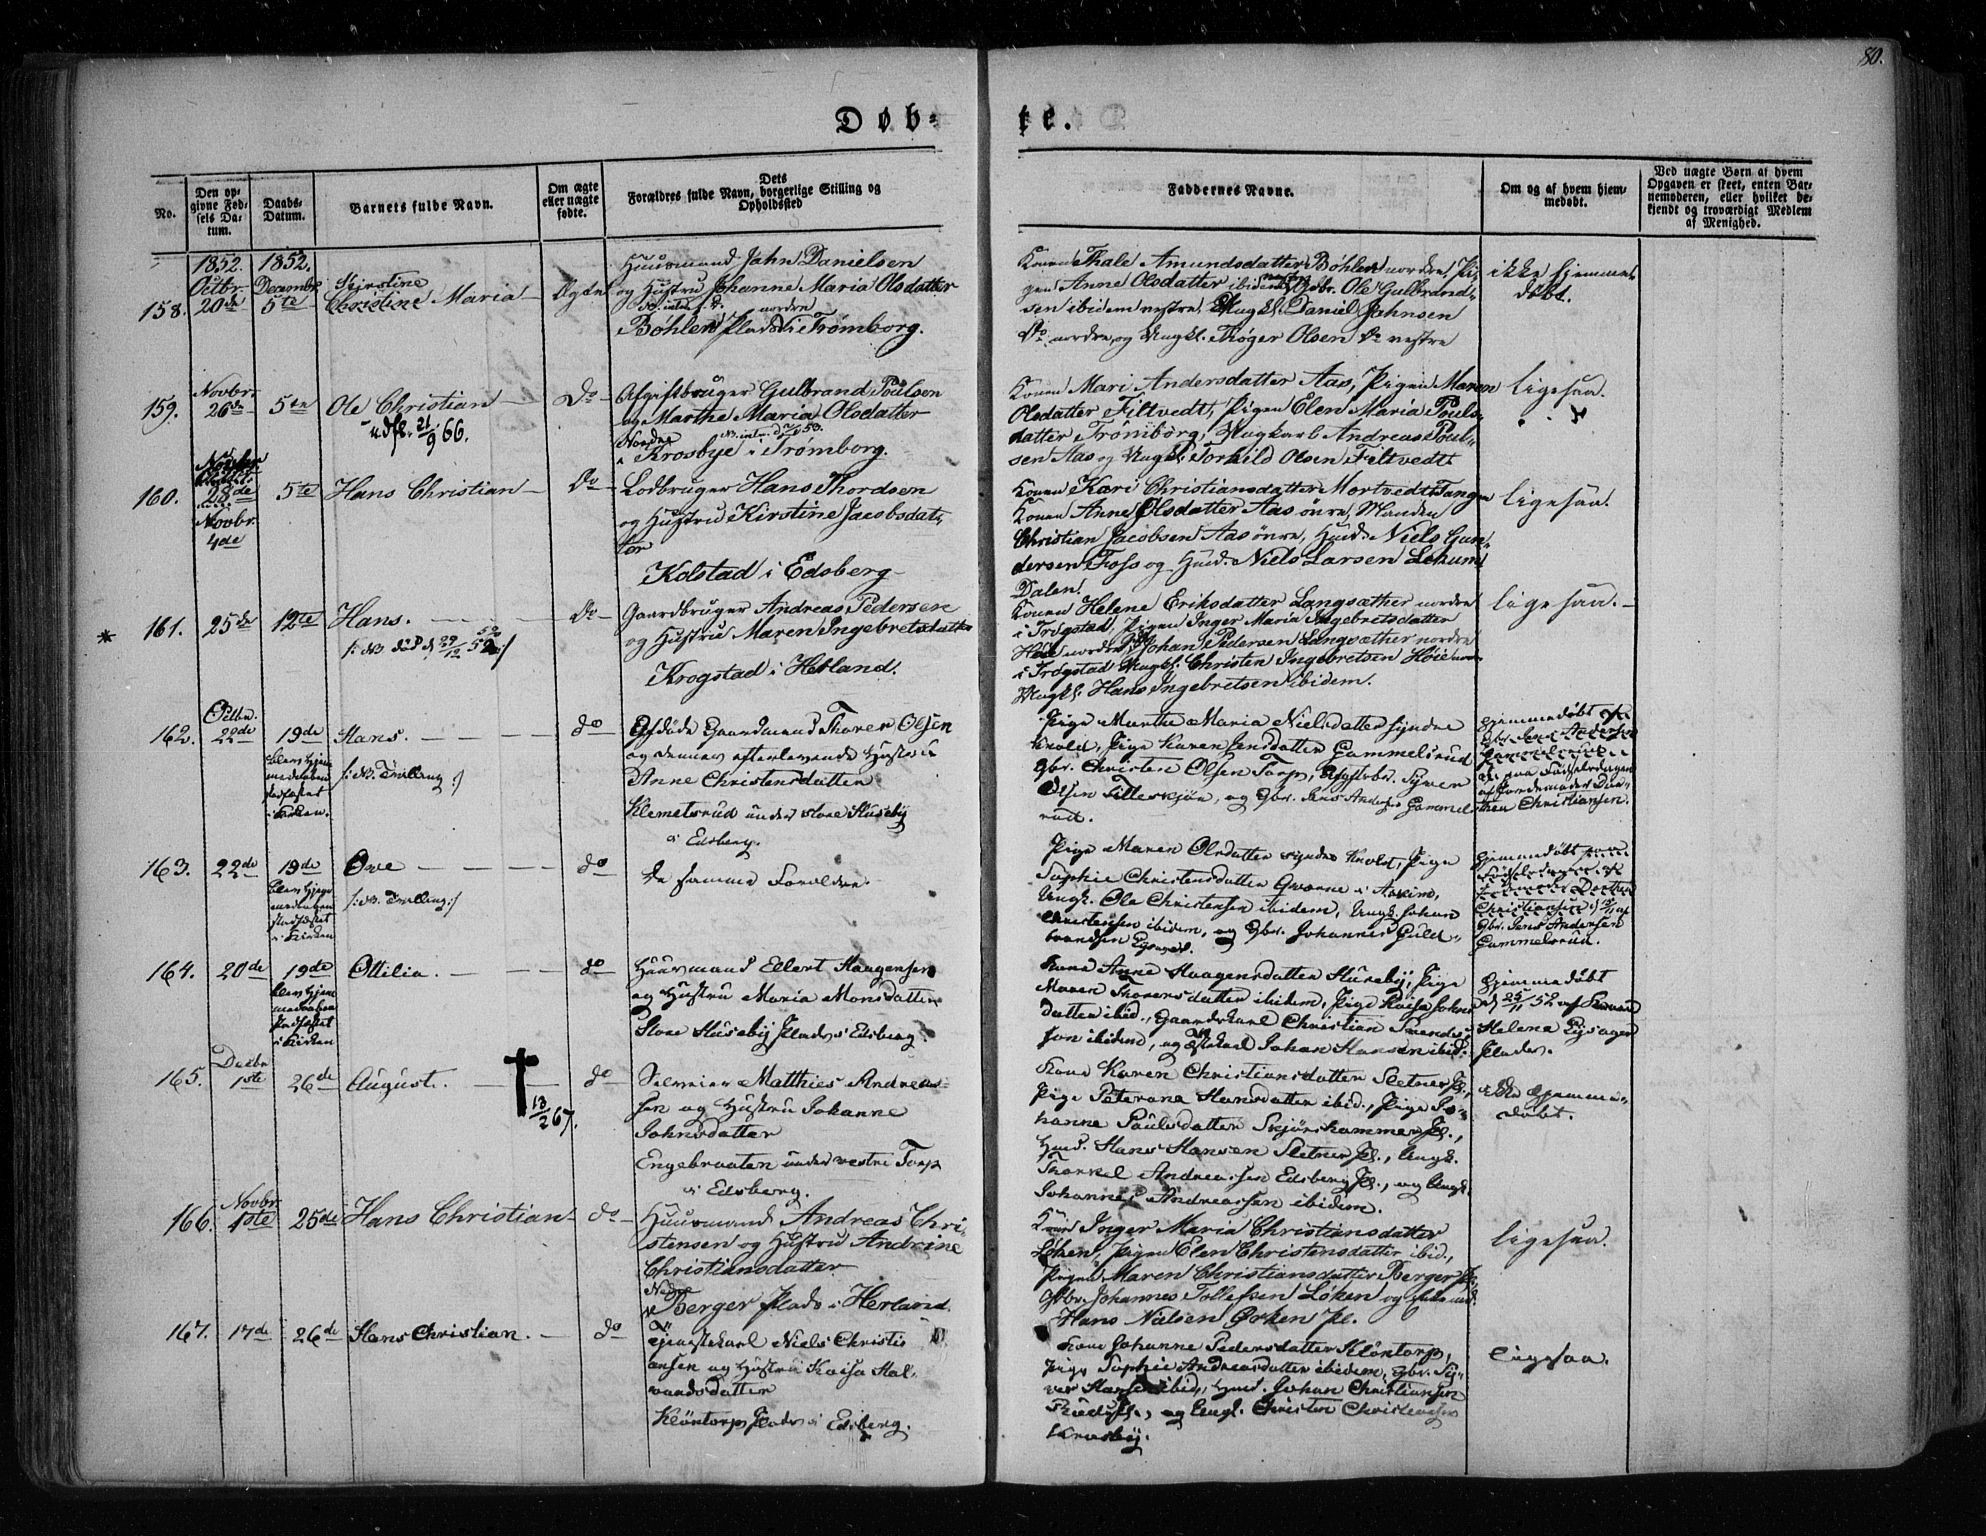 80.
Døb-
te.
No.
Den op-
givne Fød-
sels Da-
tum.
Daabs-
Datum.
Barnets fulde Navn.
Om ægte
eller uægte
fødte.
Dets
Forældres fulde Navn, borgerlige Stilling og
Opholdssted
Faddernes Navne.
Om og af hvem hjem-
medøbt.
Ved uægte Børn af hvem
Opgaven er skeet, enten Bar-
nemoderen, eller hvilket be-
kjendt og troværdigt Medlem
af Menighed.
158.
1852.
Octbr.
20de
1852.
Decembr.
5te
Kjirstine
Christine Maria
Ægte
Huusmand Jahn Danielsen
og Hustru Johanne Maria Olsdatter
nordre
Bøhlen Plads i Trømborg.
Konen Thale Amundsdatter Bøhlen nordre, Pi-
gen Anne Olsdatter ibidem, Gbr. Ole Gulbrand-
sen ibidem vestre, Ungk. Daniel Jahnsen
Do nordre, og Ungk. Thøger Olsen Do vestre
ikke hjemme-
døbt.
159.
Novbr.
26de
5te
Ole Christian
udfl. 21/9 66.
Do
Afgiftsbruger Gulbrand Poulsen
og Marthe Maria Olsdatter
Nordre
Krosbye i Trømborg.
Konen Mari Andersdatter Aas, Pigen Maren
Olsdatter Filtvedt, Pigen Elen Maria Pouls-
datter Trømborg, Ungkarl Andreas Poul-
sen Aas og Ungk. Torkild Olsen Filtvedt
ligesaa.
160.
28de
Novbr.
4de
5te
Hans Christian
Do
Lodbruger Hans Thordsen
og Hustru Kirstine Jacobsdat-
ter
Kolstad i Edsberg
Konen Kari Christiansdatter Mortvedt Tangen
Konen Anne Olsdatter Aas øvre, Manden
Christian Jacobsen Aas øvre, Huusmd. Niels Gun-
dersen Foss og Huusmd. Niels Larsen Lekum
Dalen.
ligesaa.
* 161.
25de
12te
Hans.
/: NB død d. 29/12 52 :/
Do
Gaardbruger Andreas Pedersen
og Hustru Maren Ingebretsdatter
Krogstad i Herland.
Konen Helene Eriksdatter Langsæther nordre
i Trøgstad. Pigen Inger Maria Ingebretsdatter
Høie nordre, Johan Pedersen Langsæther nordre
i Trøgstad Ungk. Christen Ingebretsen Høie
Ungk. Hans Ingebretsen ibidem.
ligesaa.
162.
Octbr.
22de
19de
blev hjem-
medaaben
stadfæstet
i Kirken.
Hans.
/: NB. Tvilling :/
do
Afdøde Gaardmand Thorer Olsen
og dennes efterlevende Hustru
Anne Christensdatter
Klemetsrud under store Huseby
i Edsberg.
Pige Marthe Maria Nielsdatter syndre
Kvolst, Pige Karen Jensdatter Gammelsrud
Gbr. Christen Olsen Torp, Syver
Olsen, og Gbr. Jens Andersen Gammels-
rud.
Hjemmedøbt af
Gbr. Jens Andersen
Gammelsrud
paa Fødselsdagen
af Jordemoder Dor-
thea Christiansen.
163.
22de
19de
blev hjem-
medaaben
stadfæstet
i Kirken
Ove
/: NB. Tvilling :/
do
De samme Forældre.
Pige Maren Olsdatter syndre Kvolst, Pige
Sophie Christensdatter i Askim,
Ungk. Ole Christensen ibidem, Ungk. Johan
Christensen ibidem, og Gbr. Johannes Guld-
brandsen
Hjemmedøbt paa
Fødselsdagen af
Jordemoder Dorthea
Christiansen
Gbr. Jens Andersen
Gammelsrud.
164.
20de
19de
blev hjem-
medaaben
stadfæstet
i Kirken
Ottilia.
do
Huusmand Ellert Haagensen
og Hustru Maria Monsdatter
Store Huseby Plads i Edsberg.
Kone Anne Haagensdatter Huseby, Pige
Maren Thorersdatter ibidem, Pige Kaisa Johns-
datter ibid., Gaardskarl Christian Svends-
sen ibidem, og Johan Hansen ibid.
Hjemmedøbt
d 25/11 52 af
Helena
Plads.
165.
Decbr.
1ste
26de
August.
13/2 67.
do
Selveier Matthies Andreas-
sen og Hustru Johanne
Johnsdatter
Engebraaten under vestre Torp
i Edsberg.
Kone Karen Christiansdatter Sletner Pl.,
Pige Peterane Hansdatter ibid., Pige Jo-
hanne Paulsdatter Skjørshammer Pl.,
Huusmd. Hans Hansen Sletner Pl., Ungk.
Thorkel Andreassen Edsberg Pl., og Ungk.
Johannes Andreassen ibidem.
ikke hjemme-
døbt.
166.
Novbr.
1ste
25de
Hans Christian
do
Huusmand Andreas Chri-
stensen og Hustru Andrine
Christiansdatter
Nedre
Berger Plads i Herland.
Kone Inger Maria Christiansdatter
Løken, Pigen Elen Christensdatter ibid.,
Pigen Maren Christiansdatter Berger Pl.
Gbr. Johannes Tollefsen Løken og
Hans Nielsen Ørken Pl.
ligesaa.
167.
17de
26de
Hans Christian.
do
Tjenestekarl Niels Christi-
ansen og Hustru Kaisa Hal-
vardsdatter
Kløntorp Plads i Edsberg.
Kone Johanne Pedersdatter Kløntorp,
Pige Sophie Andreasdatter ibidem, Gbr. Sy-
ver Hansen ibid., Huusmd. Johan Christiansen
Ruud Pl., og Ungk. Christen Christensen
Krosby.
ligesaa.